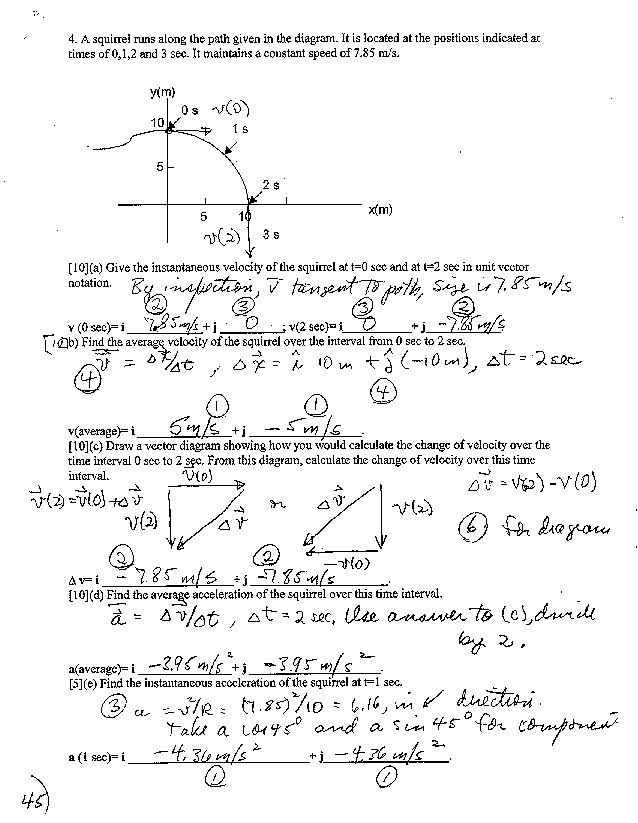 4. A squirrel runs along the path given in the diagram. It is located at the positions indicated at
times of 0,1,2 and 3 sec. It maintains a constant speed of 7.85 m/s.
y(m)
0 s v(0)
10
1 s
5
2 s
5 10 x(m)
v(2) 3 s
[10](a) Give the instantaneous velocity of the squirrel at t=0 sec and at t=2 sec in unit vector
notation. By inspection, v tangent to path, size is 7.85 m/s
② ③ ③ ②
v (0 sec)= i 7.85 m/s + j 0 ; v(2 sec)= i 0 + j -7.85 m/s
[10](b) Find the average velocity of the squirrel over the interval from 0 sec to 2 sec.
v = Δx/Δt , Δx = i 10 m + j (-10 m), Δt = 2 sec
④ ④
① ①
v(average)= i 5 m/s + j - 5 m/s
[10](c) Draw a vector diagram showing how you would calculate the change of velocity over the
time interval 0 sec to 2 sec. From this diagram, calculate the change of velocity over this time
interval. v(0) Δv = v(2) - v(0)
v(2) = v(0) + Δv
v(2) Δv or Δv v(2)
⑥ for diagram
② ② -v(0)
Δ v= i - 7.85 m/s + j -7.85 m/s
[10](d) Find the average acceleration of the squirrel over this time interval.
a = Δv/Δt , Δt = 2 sec, Use answer to (c), divide
by 2.
a(average)= i -3.95 m/s² + j -3.95 m/s²
[5](e) Find the instantaneous acceleration of the squirrel at t=1 sec.
③ a = v²/R = (7.85)²/10 = 6.16, in ↙ direction.
Take a cos 45° and a sin 45° for component
a (1 sec)= i -4.36 m/s² + j -4.36 m/s²
① ①
45)